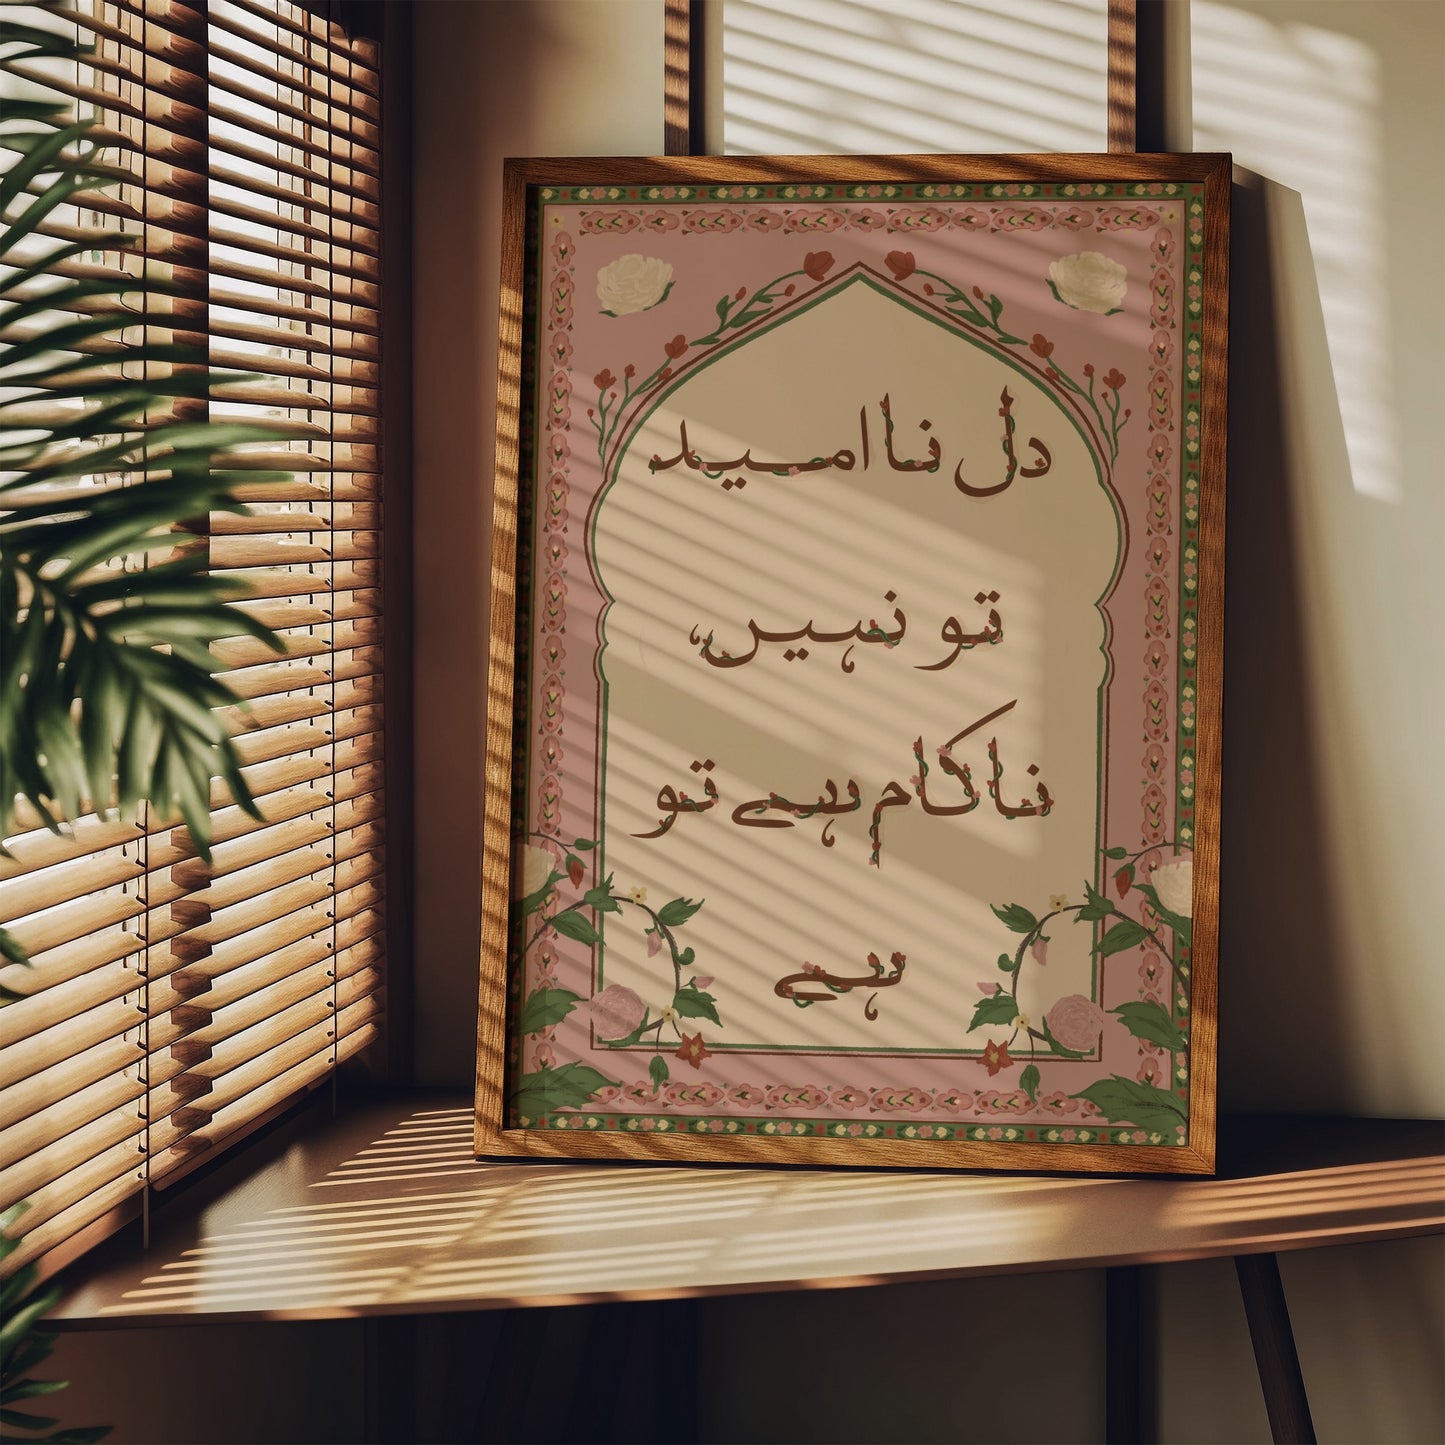 دل نا امید
تو نہیں،
ناکام ہے تو
ہے